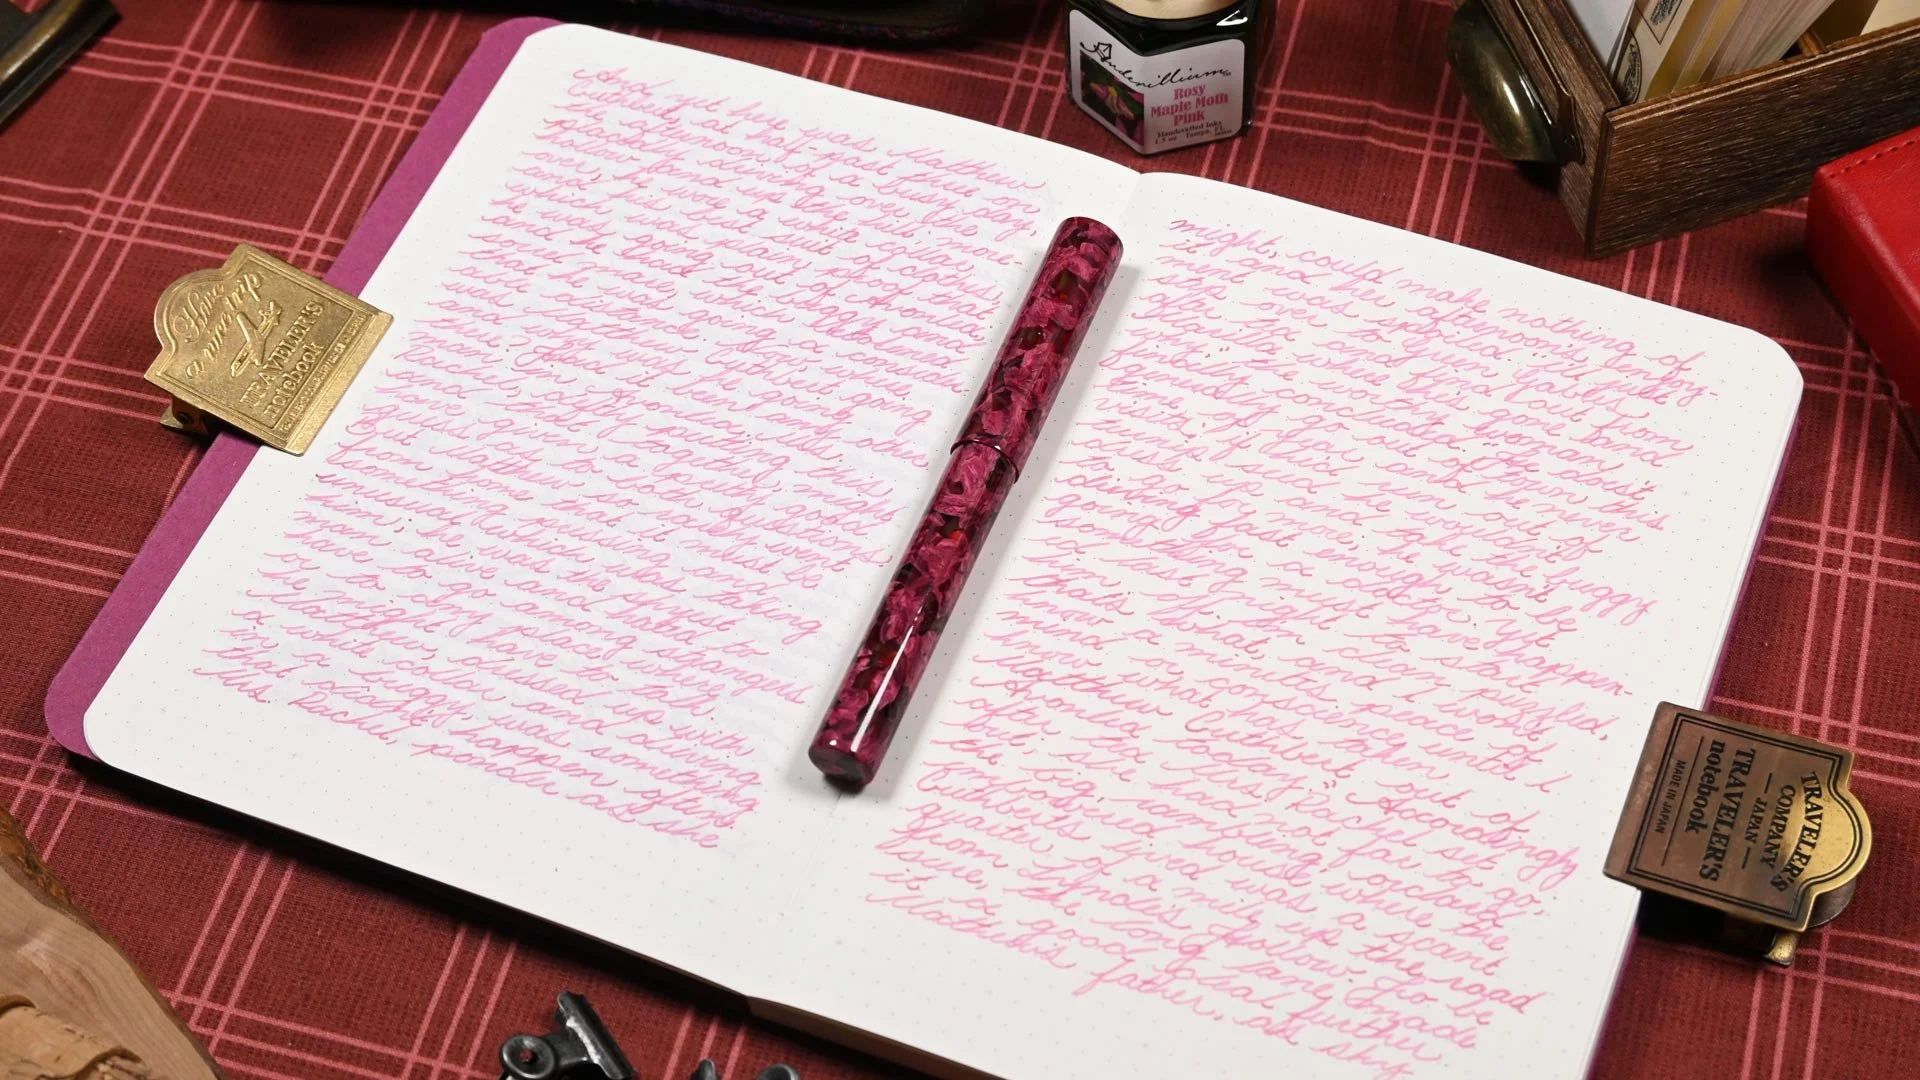 And yet here was Matthew
Cuthbert, at half-past three on
the afternoon of a busy day,
placidly driving over the
hollow and up the hill; more
over, he wore a white collar
and his best suit of clothes,
which was plain proof that
he was going out of Avonlea;
and he had the buggy and
sorrel mare, which betokened
that he was going a consi
distance. Now,
was Matthew Cuthbert going
and why was he going there?
Had it been any other
man in Avonlea, Mrs.
Rachel, deftly putting this
and that together, might
have given a pretty good
guess as to both questions.
But Matthew so rarely went
from home that it must be
something pressing and
unusual which was taking
him; he was the shyest
man alive and hated to
have to go among strangers
or to any place where
he might have to talk.
Matthew, dressed up with
a white collar and driving
in a buggy, was something
that didn't happen often.
Mrs. Rachel, ponder as she
might, could make nothing of
it and her afternoon's enjoy-
ment was spoiled. "I'll just
step over to Green Gables
after tea and find out from
Marilla where he's gone and
why," the worthy woman
finally concluded. "He doesn't
generally go to town this
time of year and he never
visits; if he'd run out of
turnip seed he wouldn't
dress up and take the buggy
to go for more; he wasn't
driving fast enough to be
going for a doctor. Yet
something must have happen-
ed since last night to start
him off. I'm clean puzzled,
that's what, and I won't
know a minute's peace of
mind or conscience until I
know what has taken
Matthew Cuthbert out of
Avonlea today." Accordingly
after tea Mrs. Rachel set
out; she had not far to go;
the big, rambling, orchard
embowered house where the
Cuthberts lived was a scant
quarter of a mile up the road
from Lynde's Hollow. To be
sure, the long lane made
it a good deal further.
Matthew's father, as shy
Anderillium
Rosy
Maple Moth
Pink
Handcrafted Inks
1.5 oz Tampa, FL
Have
a nice trip
TRAVELER'S
notebook
TRAVELER'S
COMPANY
JAPAN
TRAVELER'S
notebook
MADE IN JAPAN